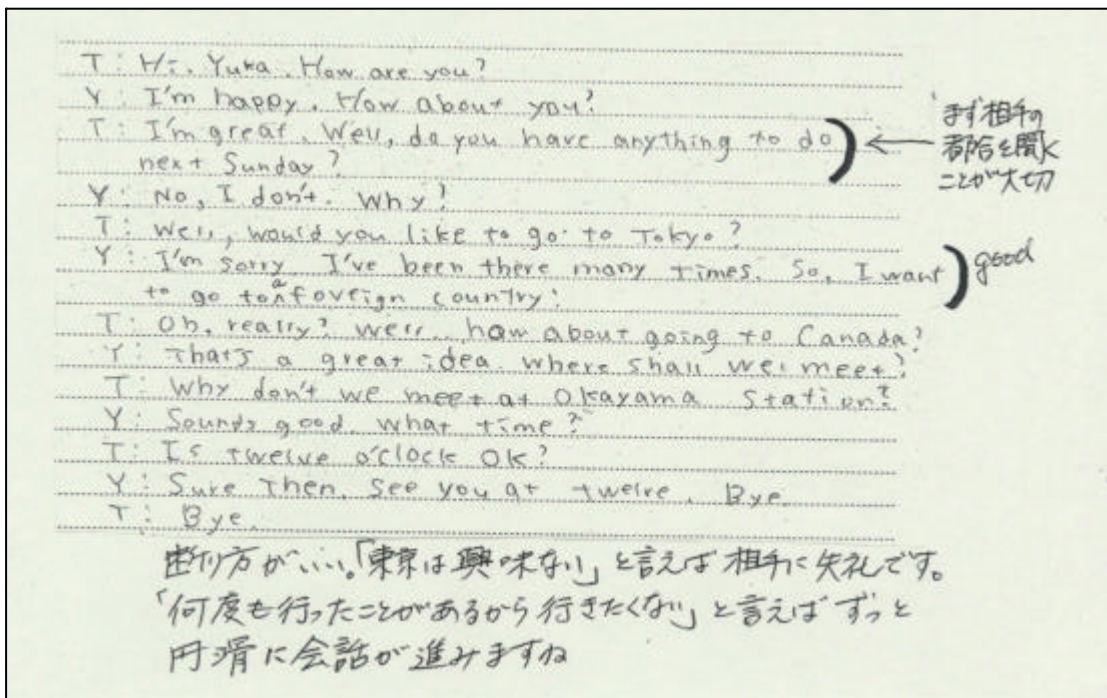 T: Hi, Yuka. How are you?
Y: I'm happy. How about you?
T: I'm great. Well, do you have anything to do
next Sunday?
まず相手の
都合を聞く
ことが大切
Y: No, I don't. Why?
T: Well, would you like to go to Tokyo?
Y: I'm sorry. I've been there many times. So, I want
to go to a foreign country.
good
T: Oh, really? Well.. how about going to Canada?
Y: That's a great idea. Where shall we meet?
T: Why don't we meet at Okayama Station?
Y: Sounds good. What time?
T: Is twelve o'clock OK?
Y: Sure. Then, see you at twelve. Bye.
T: Bye.
断り方がいい。「東京は興味ない」と言えば相手に失礼です。
「何度も行ったことがあるから行きたくない」と言えばずっと
円滑に会話が進みますね